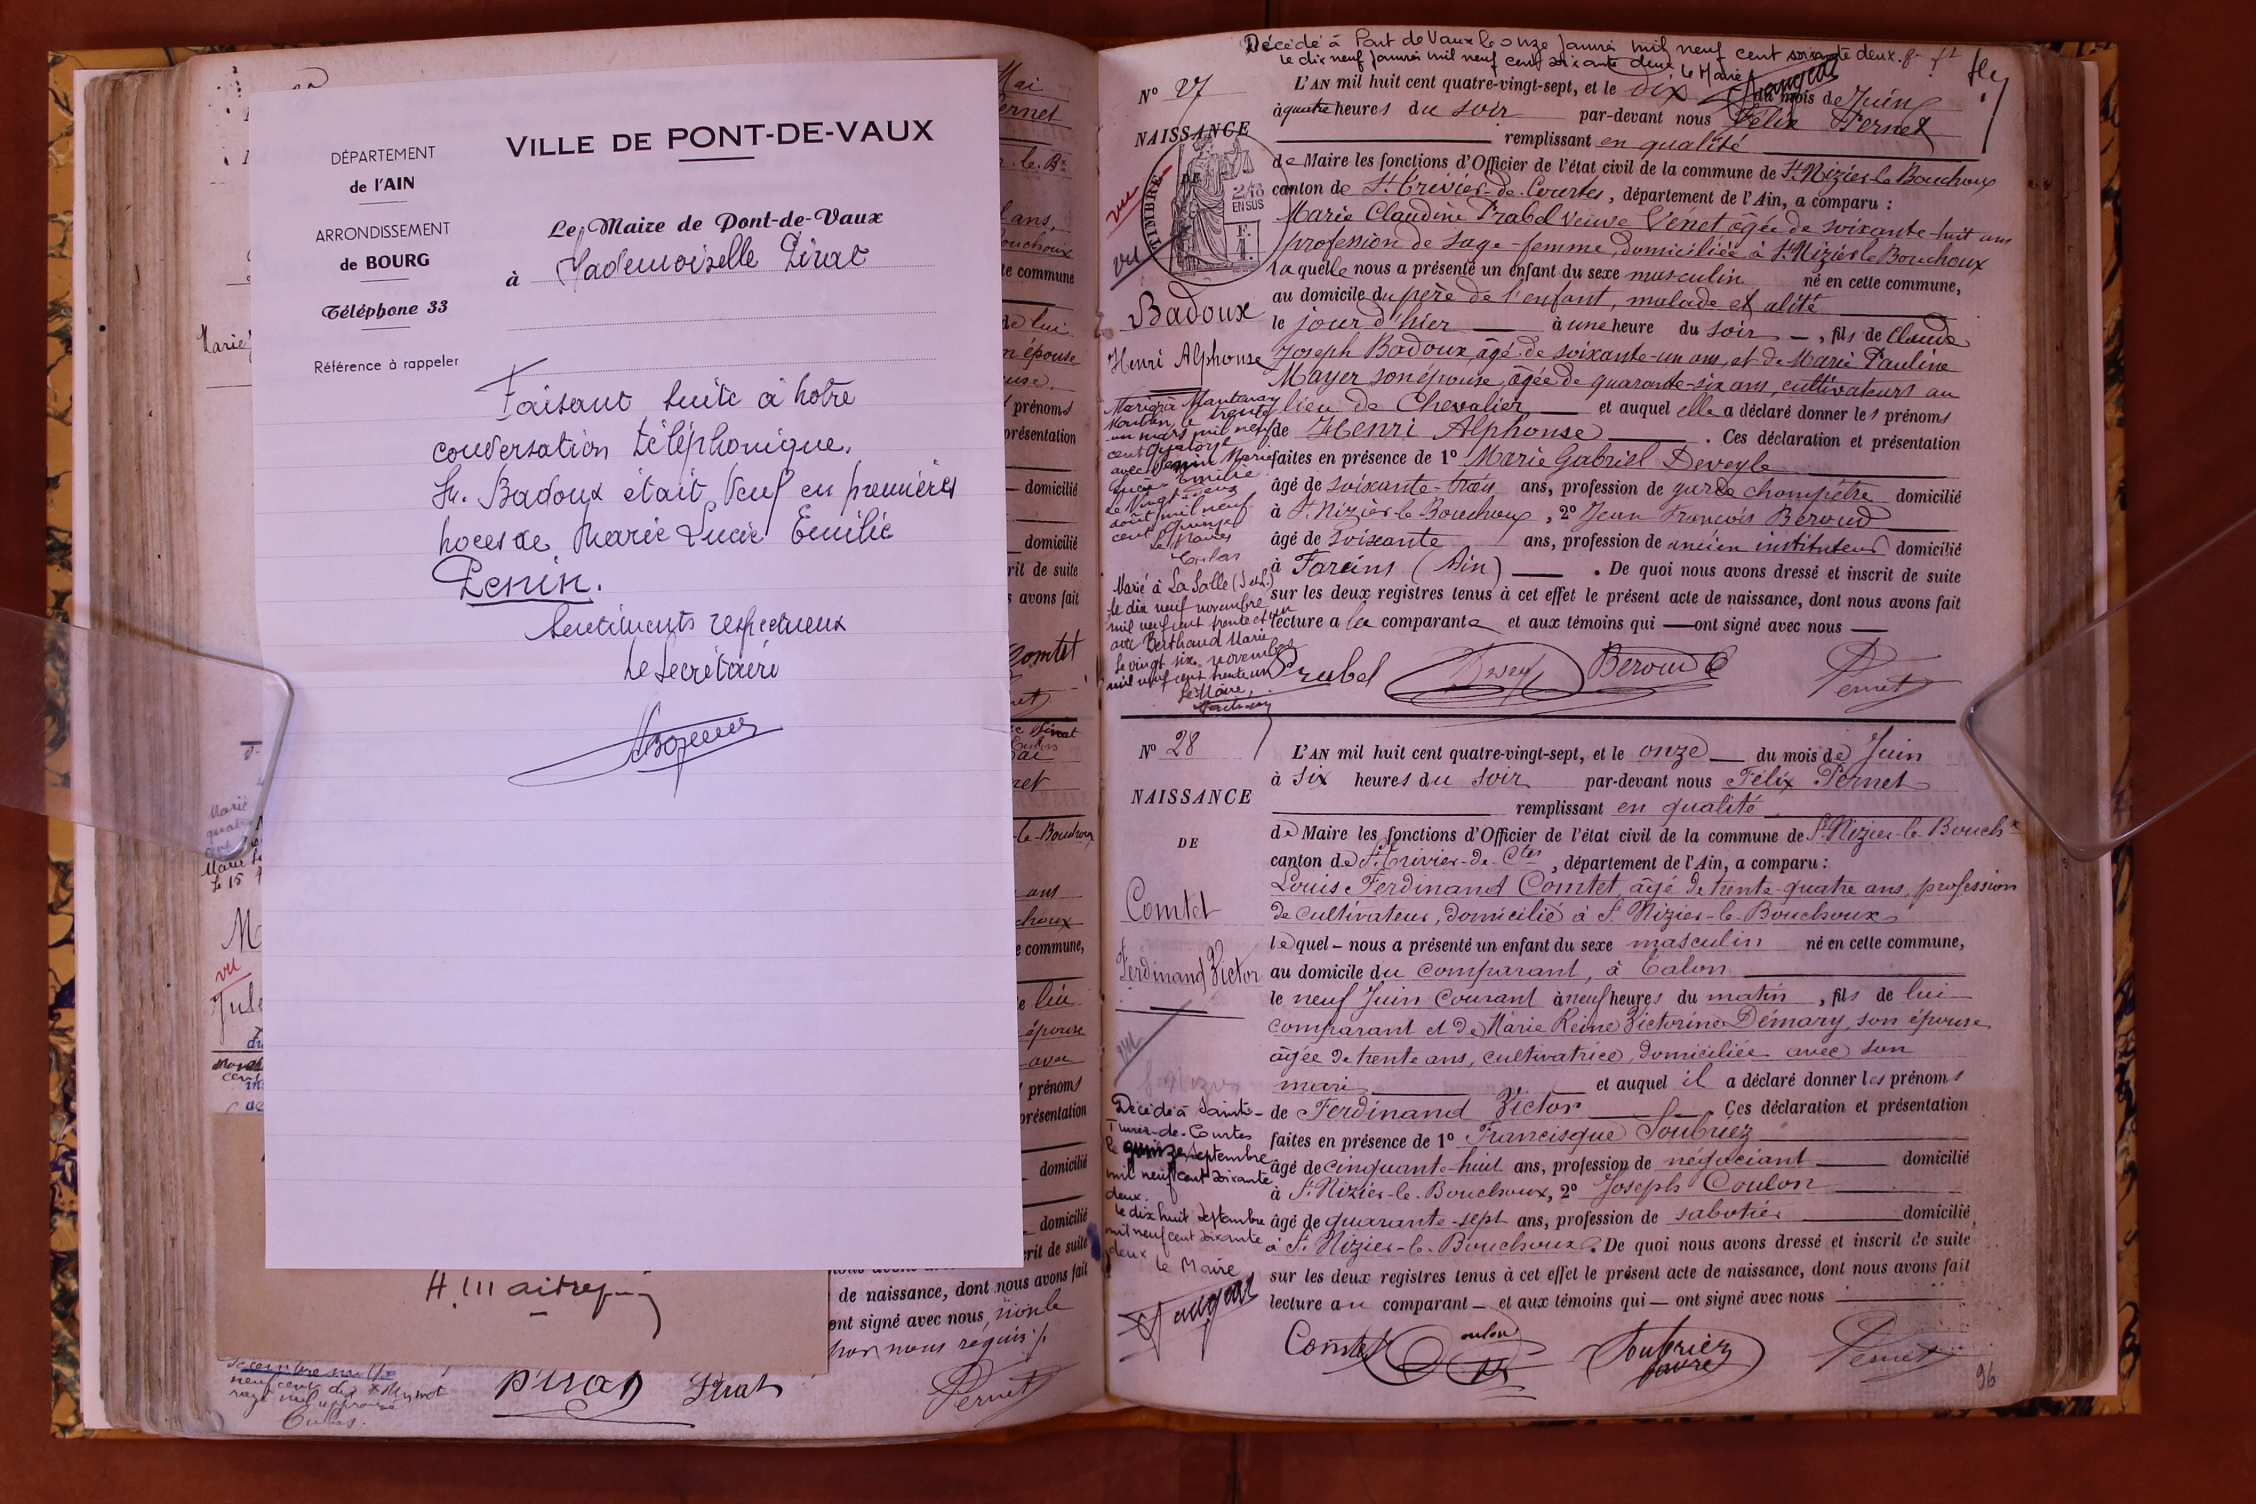 DÉPARTEMENT
de l'AIN
ARRONDISSEMENT
de BOURG
Téléphone 33
Référence à rappeler
VILLE DE PONT-DE-VAUX
Le Maire de Pont-de-Vaux
à Mademoiselle Pirat
Faisant suite à notre
conversation téléphonique.
M. Badoux était Veuf en premières
noces de Marie Lucie Emilie
Penin.
Sentiments respectueux
Le Secrétaire
de naissance, dont nous avons fait
ont signé avec nous
Pirat
Pernet
Décédé à Pont de Vaux le onze Janvier mil neuf cent soixante deux.
le dix neuf Janvier mil neuf cent soixante deux le Maire
N° 27
NAISSANCE
DE
TIMBRE
2/10
EN SUS
Badoux
Henri Alphonse
Marié à
Montban, le trente
un mars mil neuf
cent quatorze
avec Penin Marie
Lucie Emilie
Le vingt-deux
août mil neuf
cent quinze
Le Maire
Marié à La Salle (S et L.)
le dix neuf novembre
mil neuf cent trente et un
avec Berthaud Marie
Le vingt six novembre
mil neuf cent trente un
Le Maire,
L'AN mil huit cent quatre-vingt-sept, et le dix du mois de Juin
à quatre heures du soir par-devant nous Félix Pernet
remplissant en qualité
de Maire les fonctions d'Officier de l'état civil de la commune de St Nizier-le-Bouchoux
canton de St Trivier-de-Courtes, département de l'Ain, a comparu :
Marie Claudine Prabel veuve Venet âgée de soixante-huit ans
profession de sage-femme, domiciliée à St Nizier le Bouchoux
laquelle nous a présenté un enfant du sexe masculin né en cette commune,
au domicile du père de l'enfant, malade et alité
le jour d'hier à une heure du soir, fils de Claude
Joseph Badoux, âgé de soixante-un ans, et de Marie Pauline
Mayer son épouse, âgée de quarante-six ans, cultivateurs au
lieu de Chevalier et auquel elle a déclaré donner les prénoms
de Henri Alphonse. Ces déclaration et présentation
faites en présence de 1° Marie Gabriel Deveyle
âgé de soixante-trois ans, profession de garde champêtre domicilié
à St Nizier-le-Bouchoux, 2° Jean François Beroud
âgé de soixante ans, profession de ancien instituteur domicilié
à Fareins (Ain). De quoi nous avons dressé et inscrit de suite
sur les deux registres tenus à cet effet le présent acte de naissance, dont nous avons fait
lecture a la comparante et aux témoins qui ont signé avec nous
Prabel Beroud Pernet
N° 28
NAISSANCE
DE
Comtet
Ferdinand Victor
Décédé à Saint-
Trivier-de-Courtes
le quinze septembre
mil neuf cent soixante
deux.
le dix huit septembre
mil neuf cent soixante
deux
le Maire
L'AN mil huit cent quatre-vingt-sept, et le onze du mois de Juin
à six heures du soir par-devant nous Félix Pernet
remplissant en qualité
de Maire les fonctions d'Officier de l'état civil de la commune de St Nizier-le-Bouchx
canton de St Trivier-de-Ctes, département de l'Ain, a comparu :
Louis Ferdinand Comtet, âgé de trente-quatre ans, profession
de cultivateur, domicilié à St Nizier-le-Bouchoux
lequel nous a présenté un enfant du sexe masculin né en cette commune,
au domicile du comparant, à Calon
le neuf Juin courant à neuf heures du matin, fils de lui
comparant et de Marie Reine Victorine Démary, son épouse
âgée de trente ans, cultivatrice, domiciliée avec son
mari et auquel il a déclaré donner les prénoms
de Ferdinand Victor. Ces déclaration et présentation
faites en présence de 1° Francisque Soubriez
âgé de cinquante-huit ans, profession de négociant domicilié
à St Nizier-le-Bouchoux, 2° Joseph Coulon
âgé de quarante-sept ans, profession de sabotier domicilié
à St Nizier-le-Bouchoux. De quoi nous avons dressé et inscrit de suite
sur les deux registres tenus à cet effet le présent acte de naissance, dont nous avons fait
lecture au comparant et aux témoins qui ont signé avec nous
Comtet Coulon Soubriez Pernet
96